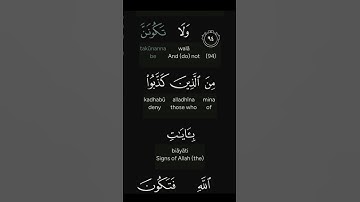 ٩٤ وَلَا تَكُونَنَّ
(94) walā takūnanna
And (do) not be
مِنَ ٱلَّذِينَ كَذَّبُوا۟
mina alladhīna kadhabū
of those who deny
بِـَٔايَـٰتِ
biāyāti
Signs of Allah (the)
ٱللَّهِ فَتَكُونَ